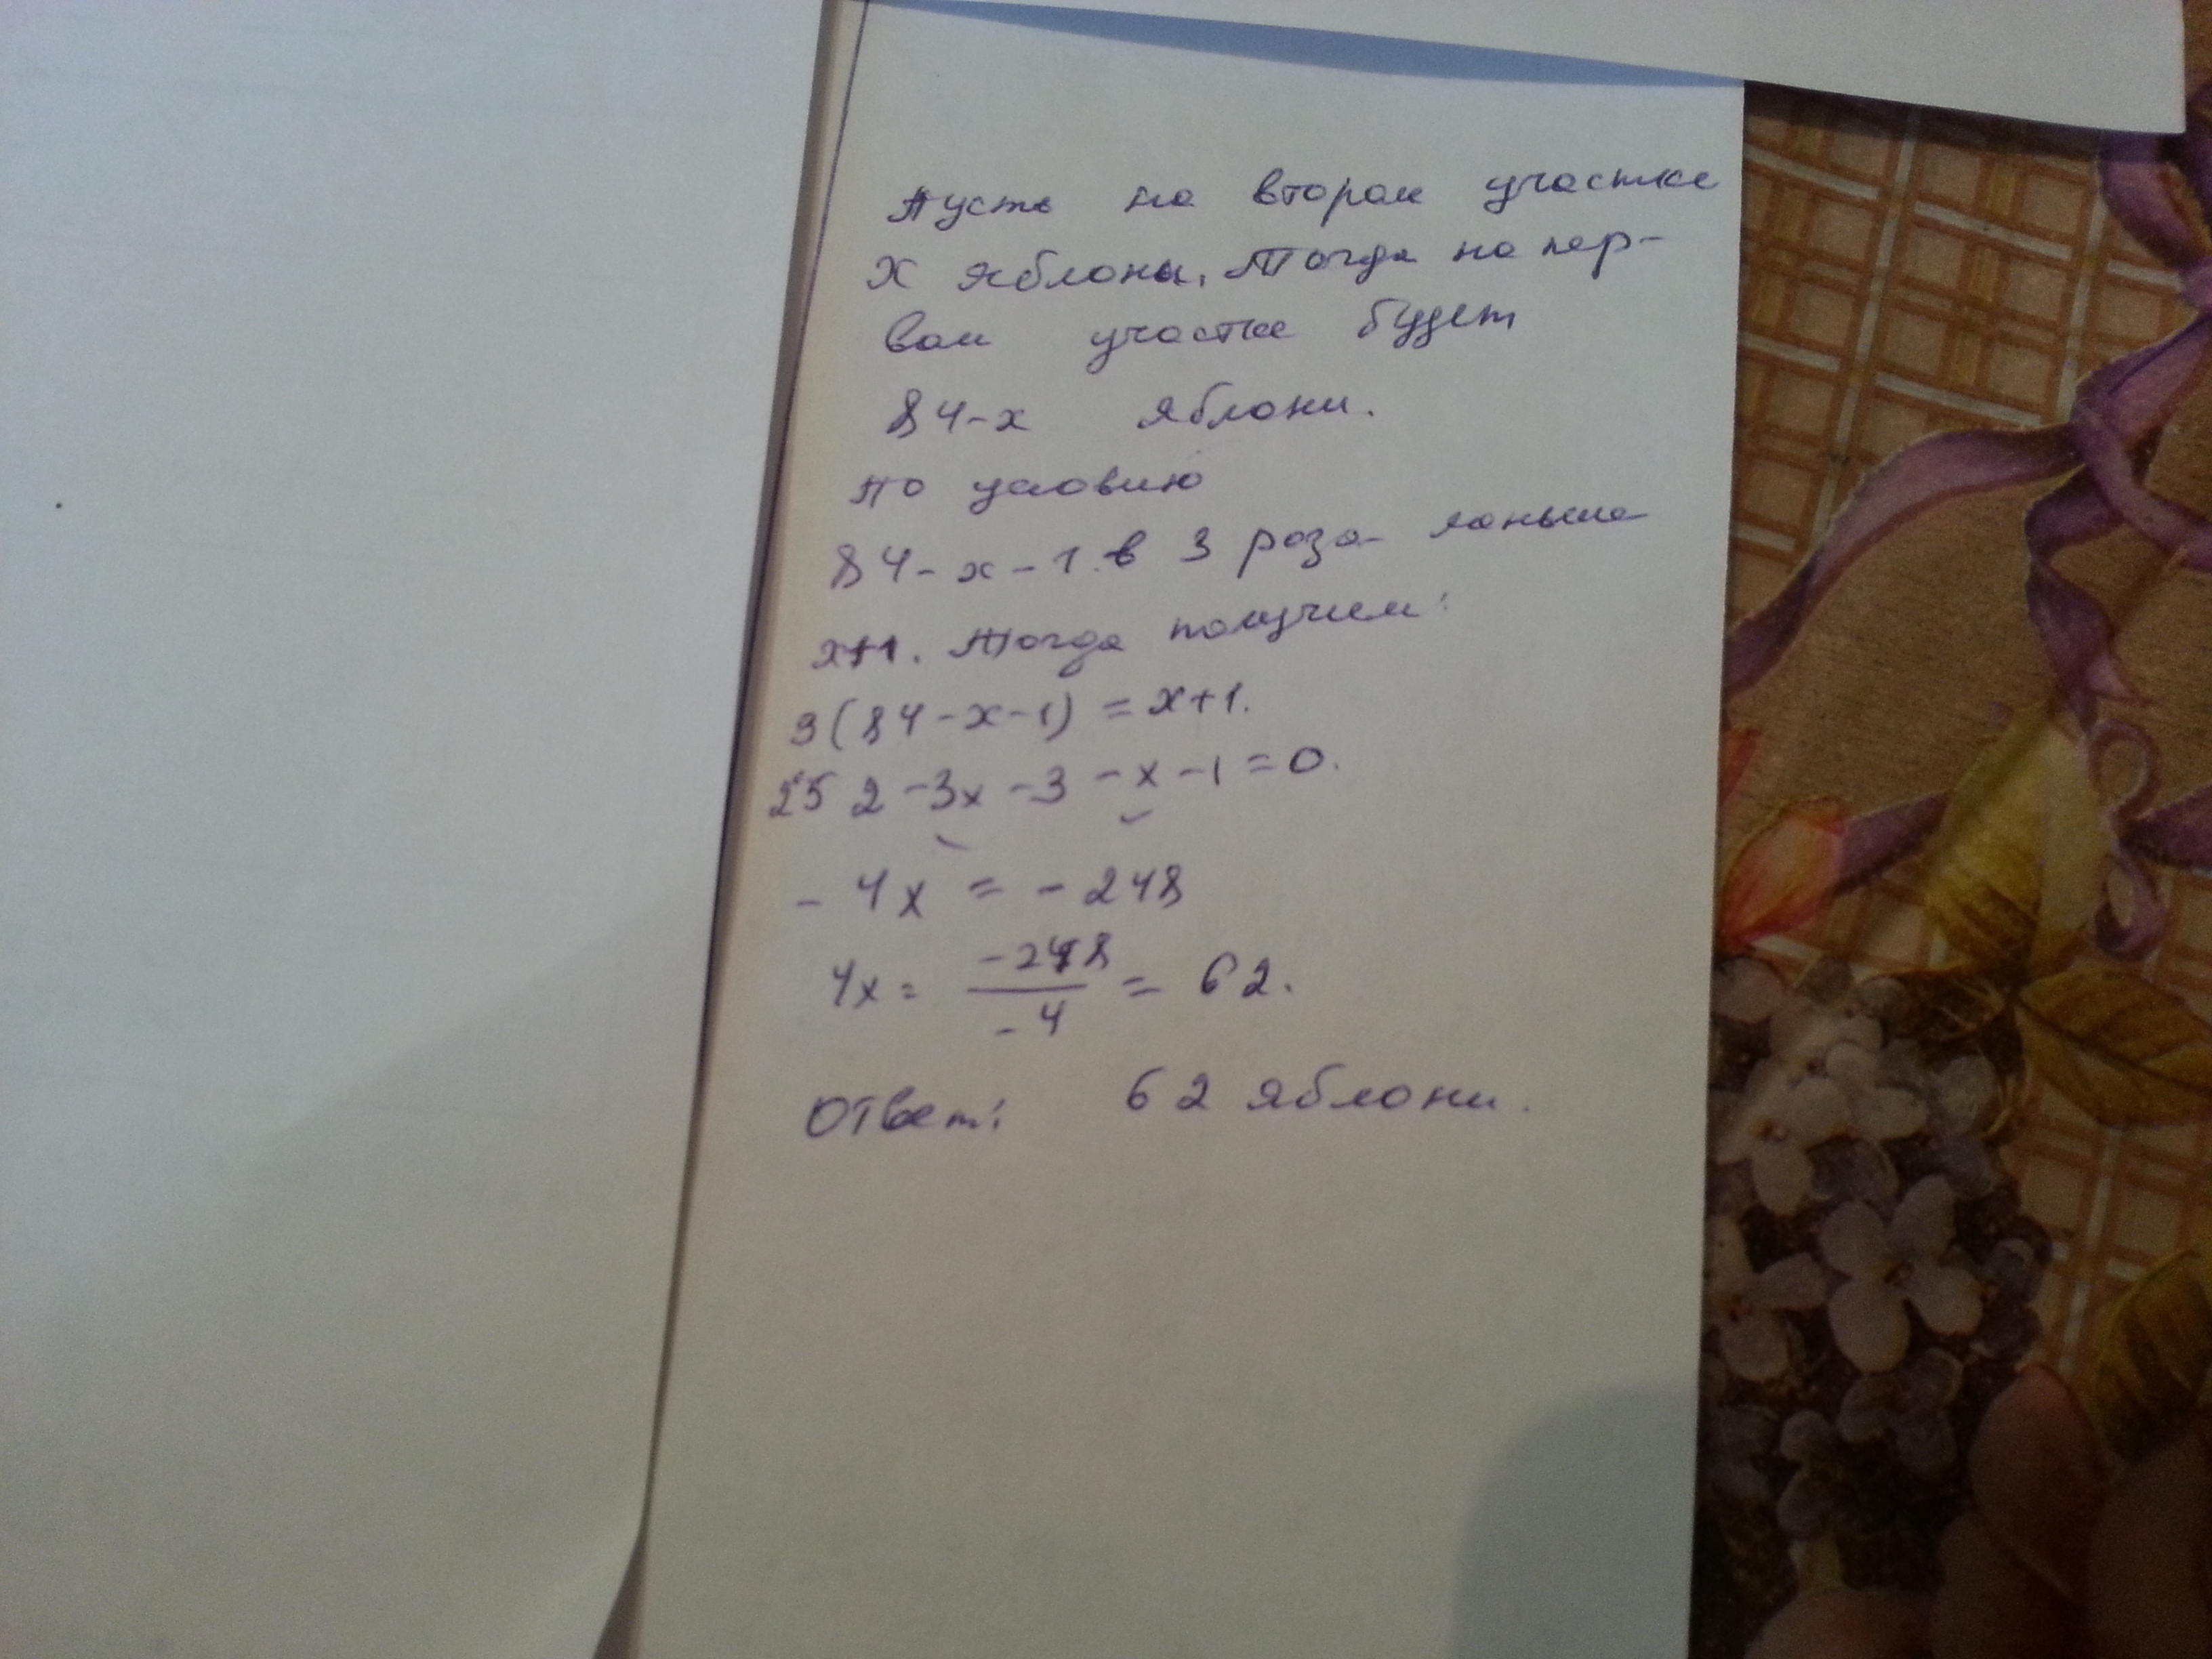 Пусть на втором участке
X яблонь. Тогда на пер-
вом участке будет
84-x яблони.
по условию
84-x-1 в 3 раза меньше
x+1. Тогда получим:
3(84-x-1) = x+1.
252-3x-3-x-1=0.
-4x = -248
4x = -248/-4 = 62.
Ответ: 62 яблони.